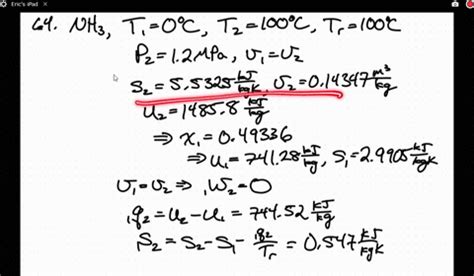 Eric's iPad
64. NH₃, T₁=0°C, T₂=100°C, Tᵣ=100°C
P₂=1.2MPa, υ₁=υ₂
S₂=5.5325 kJ/kgK, υ₂=0.14347 m³/kg
u₂=1485.8 kJ/kg
⇒ x₁=0.49336
⇒ u₁=741.28 kJ/kg, S₁=2.9905 kJ/kgK
υ₁=υ₂ ⇒ ₁W₂=0
₁q₂=u₂-u₁=744.52 kJ/kg
₁S₂=S₂-S₁-₁q₂/Tᵣ=0.547 kJ/kgK